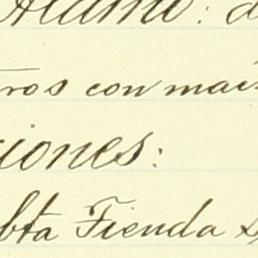 Alamo: d
ros con mai
iones:
bta Tienda